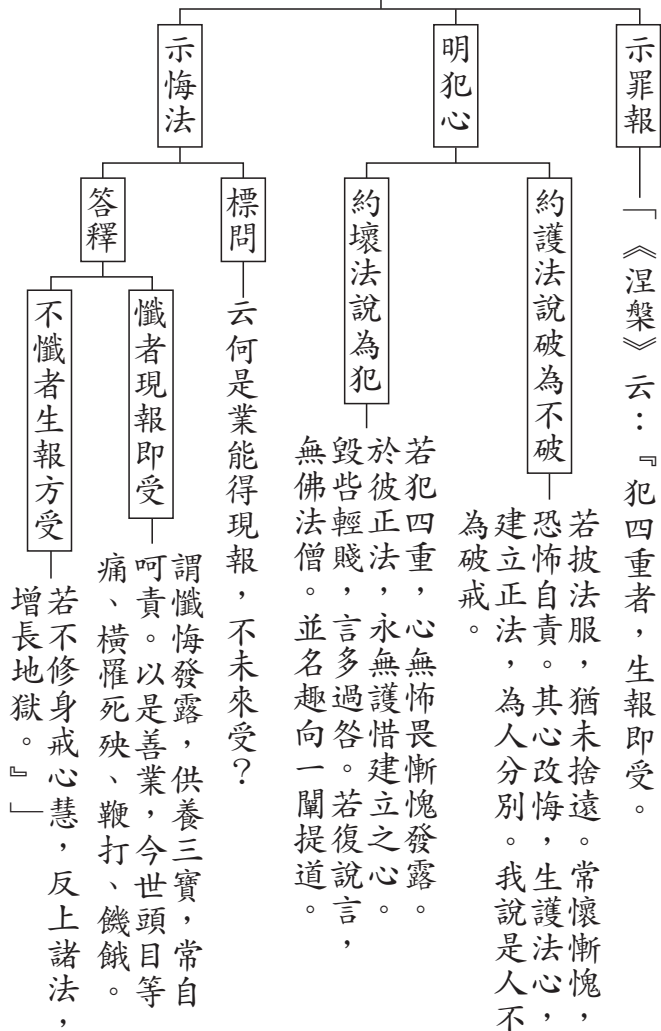 示罪報
「《涅槃》云：『犯四重者，生報即受。
明犯心
約護法說破為不破
若披法服，猶未捨遠。常懷慚愧，
恐怖自責。其心改悔，生護法心，
建立正法，為人分別。我說是人不
為破戒。
約壞法說為犯
若犯四重，心無怖畏慚愧發露。
於彼正法，永無護惜建立之心。
毀呰輕賤，言多過咎。若復說言，
無佛法僧。並名趣向一闡提道。
示悔法
標問
云何是業能得現報，不未來受？
答釋
懺者現報即受
謂懺悔發露，供養三寶，常自
呵責。以是善業，今世頭目等
痛、橫罹死殃、鞭打、饑餓。
不懺者生報方受
若不修身戒心慧，反上諸法，
增長地獄。』」